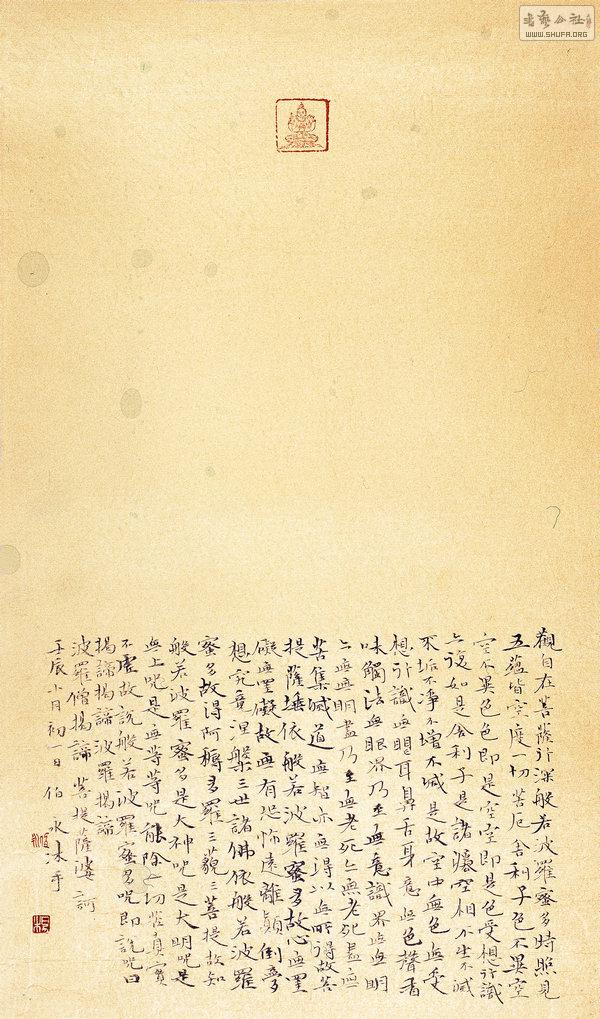 书艺公社
WWW.SHUFA.ORG
觀自在菩薩行深般若波羅蜜多時照見
五蘊皆空度一切苦厄舍利子色不異空
空不異色色即是空空即是色受想行識
亦復如是舍利子是諸法空相不生不滅
不垢不淨不增不減是故空中無色無受
想行識無眼耳鼻舌身意無色聲香
味觸法無眼界乃至無意識界無無明
亦無無明盡乃至無老死亦無老死盡無
苦集滅道無智亦無得以無所得故菩
提薩埵依般若波羅蜜多故心無罣
礙無罣礙故無有恐怖遠離顛倒夢
想究竟涅槃三世諸佛依般若波羅
蜜多故得阿耨多羅三藐三菩提故知
般若波羅蜜多是大神咒是大明咒是
無上咒是無等等咒能除一切苦真實
不虛故說般若波羅蜜多咒即說咒曰
揭諦揭諦波羅揭諦
波羅僧揭諦 菩提薩婆訶
壬辰月初一日 伯水沐手